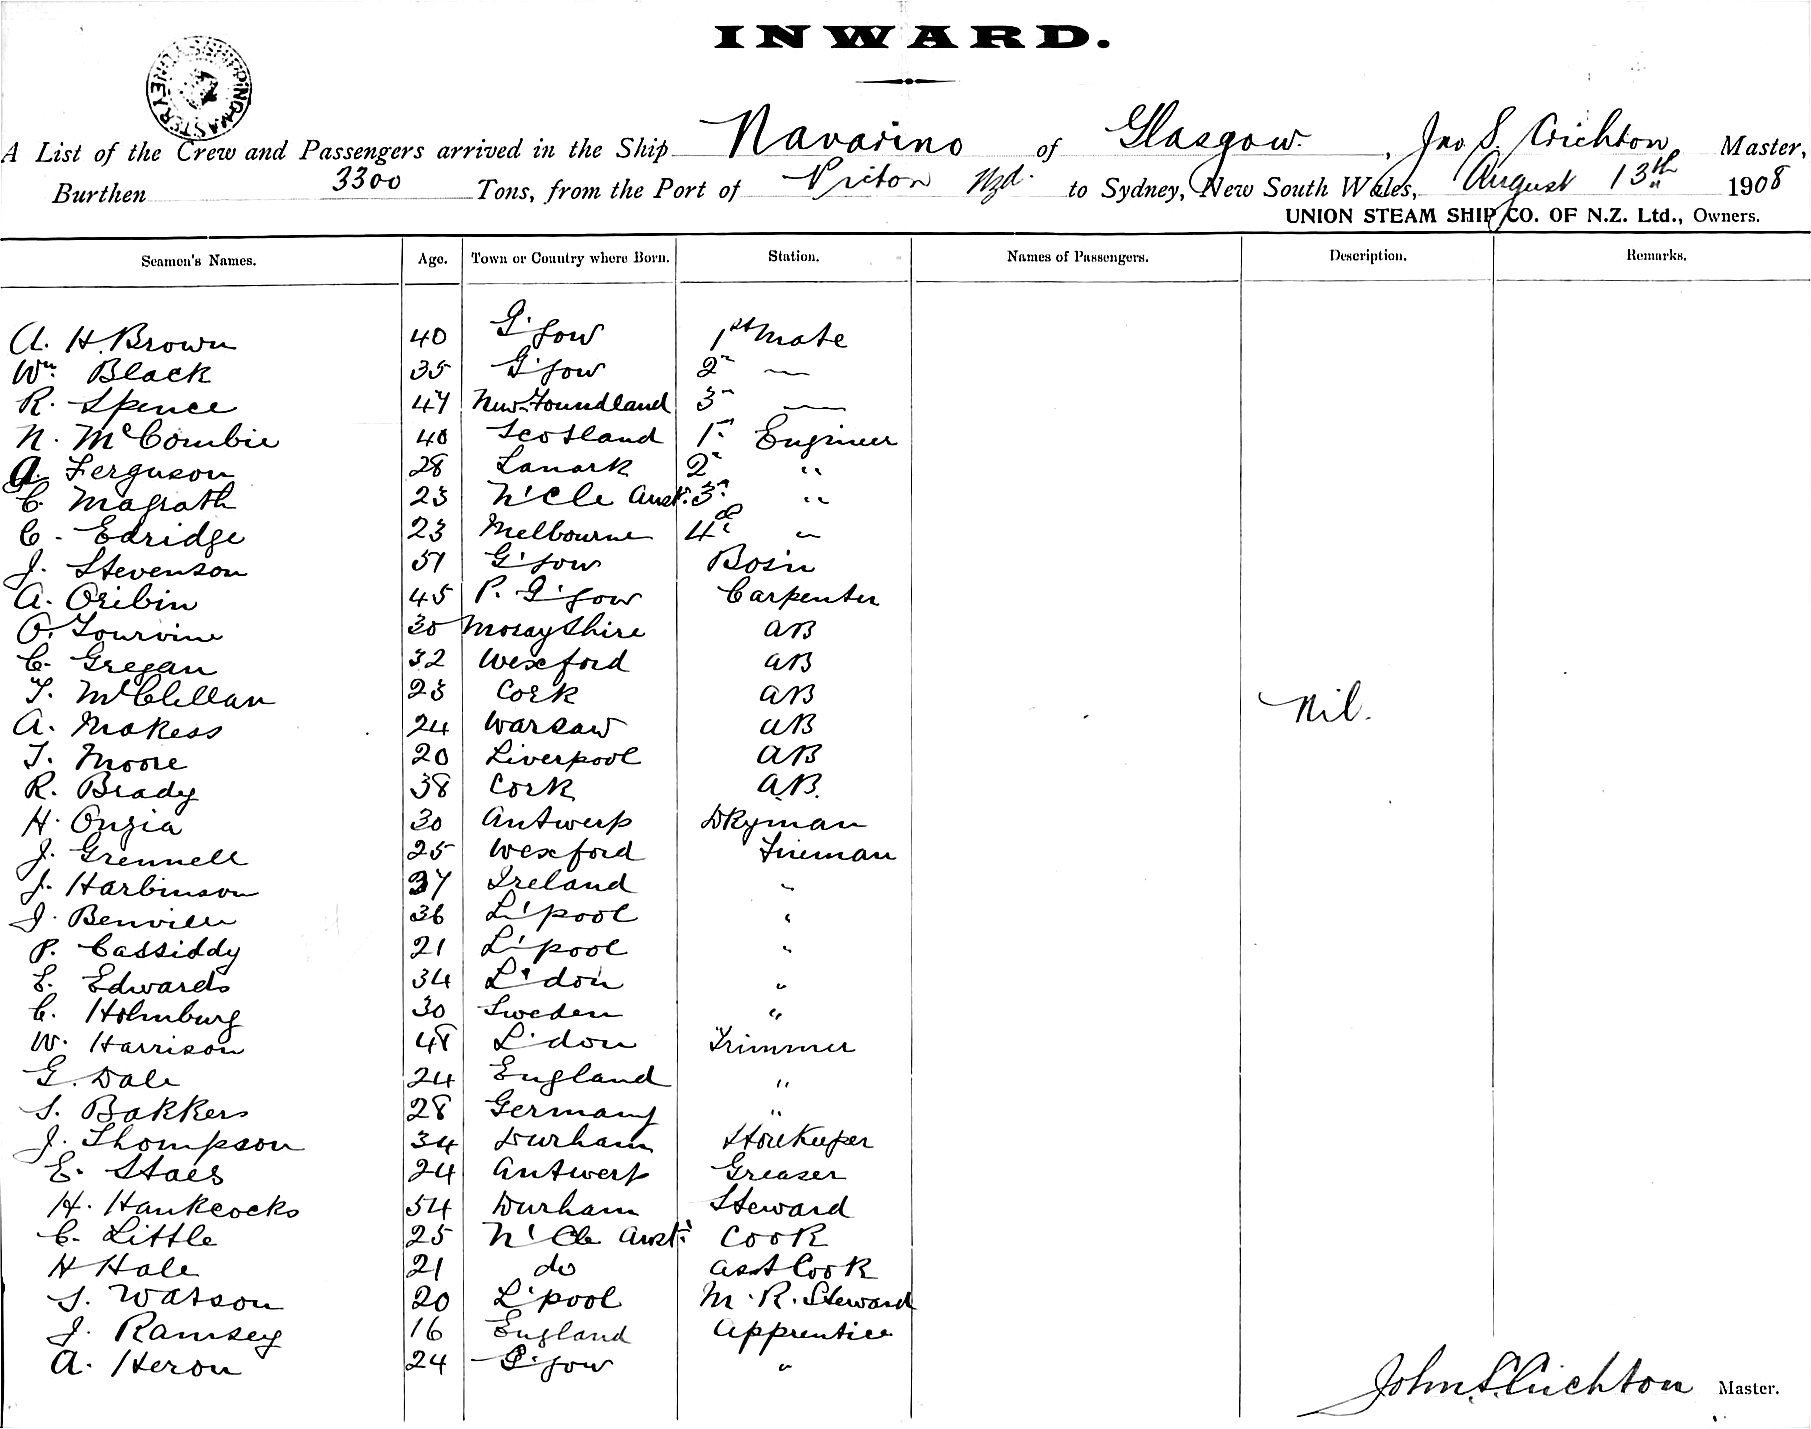 INWARD.
SHIPPING MASTER SYDNEY
A List of the Crew and Passengers arrived in the Ship Navarino of Glasgow. , Jno S. Crichton Master,
Burthen 3300 Tons, from the Port of Picton Nzd. to Sydney, New South Wales, August 13th 1908
UNION STEAM SHIP CO. OF N.Z. Ltd., Owners.
Seamen's Names. Age. Town or Country where Born. Station. Names of Passengers. Description. Remarks.
A. H. Brown 40 G'gow 1st Mate
Wm. Black 35 G'gow 2" —
R. Spence 47 New.Foundland 3" —
N. McCombie 40 Scotland 1" Engineer
A. Ferguson 28 Lanark 2" "
C. Magrath 23 N'Cle Aust. 3" "
C. Edridge 23 Melbourne 4" "
J. Stevenson 51 G'gow Bosin
A. Oribin 45 P. G'gow Carpenter
O. Tourvine 30 Morayshire AB
C. Gregan 32 Wexford AB
T. McClellan 23 Cork AB Nil.
A. Makess 24 Warsaw AB
T. Moore 20 Liverpool AB
R. Brady 38 Cork A.B.
H. 30 Antwerp Dkyman
J. Grennell 25 Wexford Fireman
J. Harbinson 37 Ireland "
J. 36 L'pool "
P. Cassiddy 21 L'pool "
E. Edwards 34 L'don "
C. Holmburg 30 Sweden "
W. Harrison 48 L'don Trimmer
G. Dale 24 England "
S. Bakkers 28 Germany "
J. Thompson 34 Durham Storekeeper
E. Staes 24 Antwerp Greaser
H. Hankcocks 54 Durham Steward
C. Little 25 N'Cle Aust. Cook
H Hale 21 do Asst Cook
S. Watson 20 L'pool M. R. Steward
J. Ramsey 16 England Apprentice
A. Heron 24 G'gow "
John S. Crichton Master.